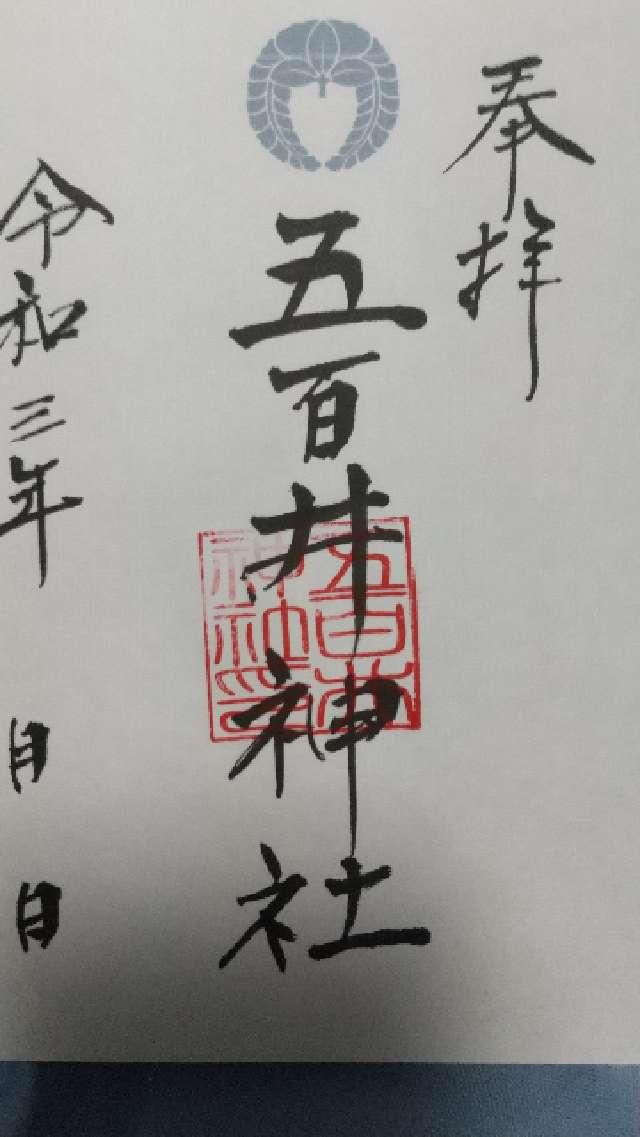 奉拝
五百井神社
五百井
神社印
令和三年 月 日